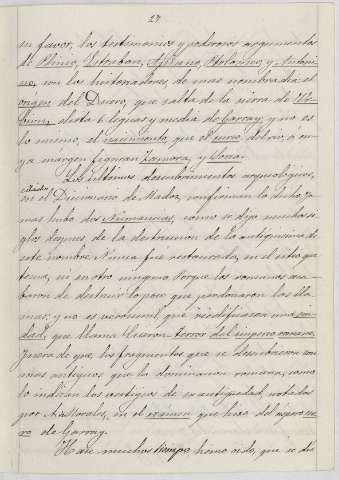 27
en favor, los testimonios y poderosos argumentos
de Plinio, Estrabon, Appiano, Ptolomeo, y Antoni-
no, con los historiadores, de mas nombradia: el
origen del Duero, que salta de la sierra de Ur-
bion, dista 6 leguas y media de Garray; y no es
lo mismo, el nacimiento, que el curso del rio, á cu-
ya margen figuran Zamora, y Soria.
Los ultimos descubrimientos arqueologicos,
citados
en el Diccionario de Madoz, confirman lo dicho; ja-
mas hubo dos Numancias, como se dijo muchos si-
glos despues de la destruccion de la antiquisima de
este nombre. Nunca fue restaurada, en el sitio que
tenia, ni en otro ninguno porque los romanos aca-
baron de destruir lo poco que perdonaron las lla-
mas; y no es verosimil que reedificasen una ciu-
dad, que llama Ciceron terror del imperio romano.
Fuera de que, los fragmentos que se descubrieron son
mas antiguos que la dominacion romana, como
lo indican los vestigios de su antiguedad, notados
por A. Morales, en el examen que hizo del
ro de Garray.
Hace muchos tiempo, hemos oido, que se dis